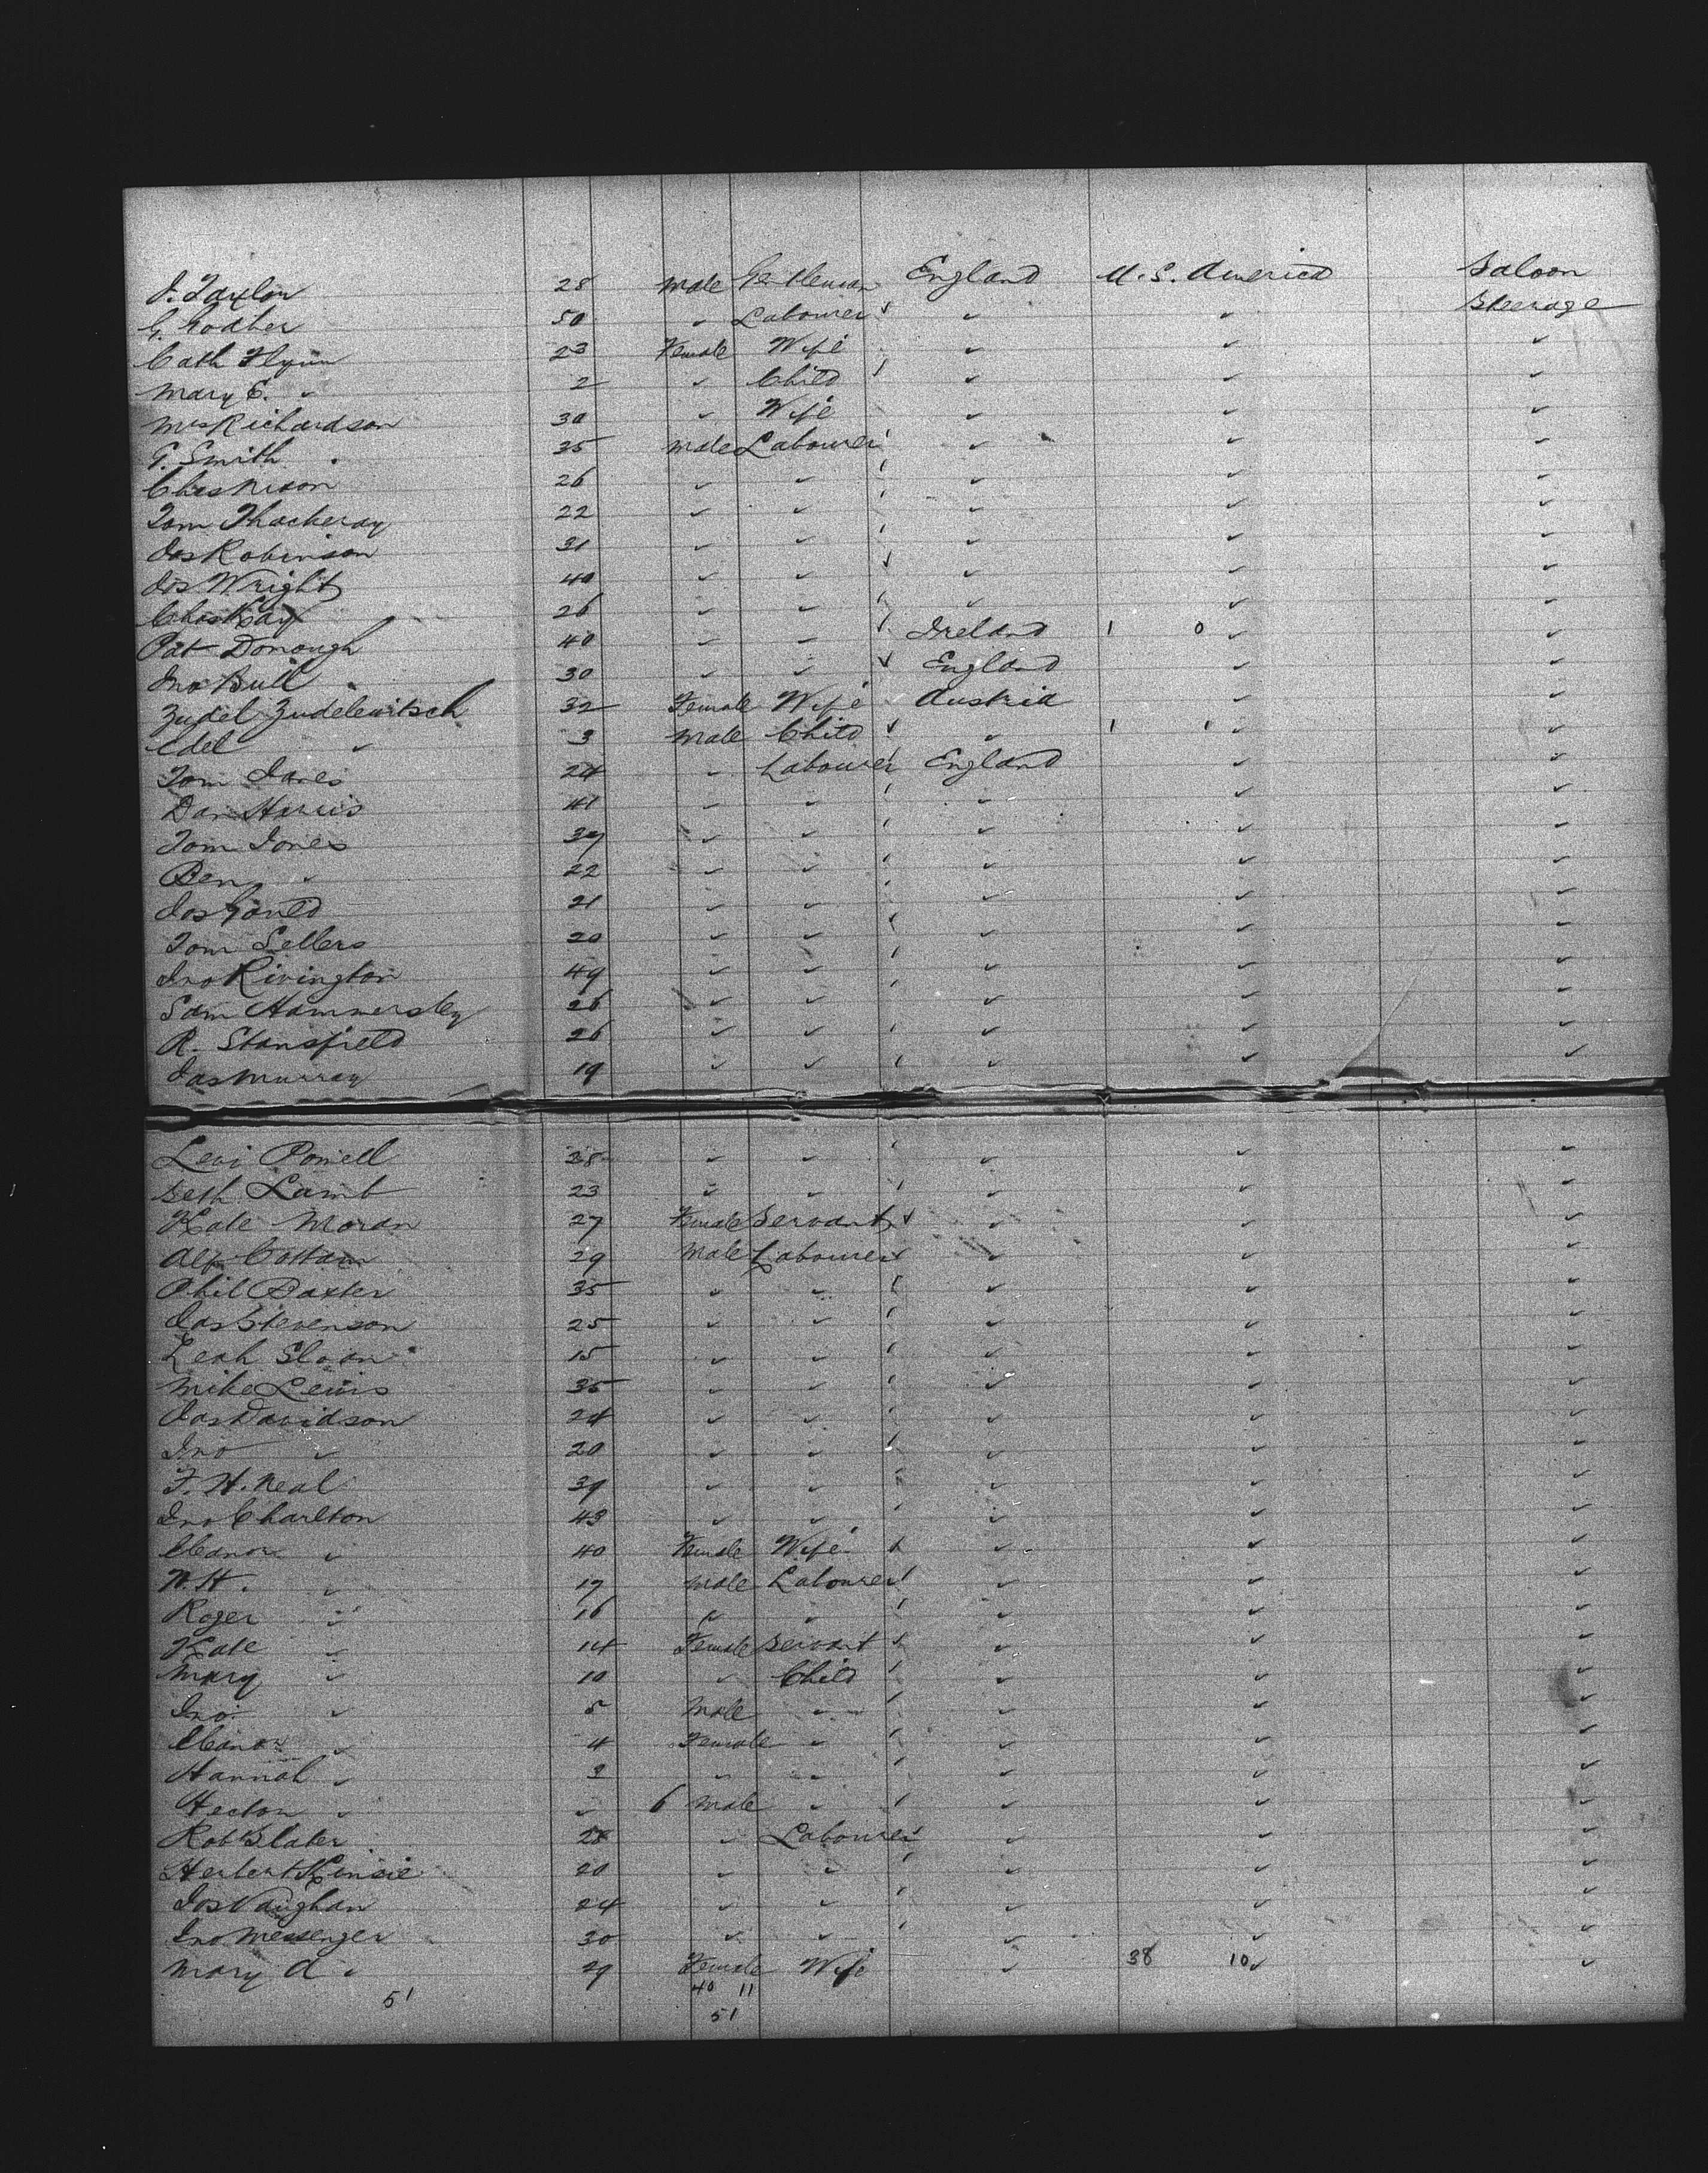 J. Taylor 28 Male Gentleman England U.S. America Saloon
G. Godber 50 " Labourer " " Steerage
Cath Flynn 23 Female Wife " " "
Mary E. " 2 " Child " " "
Mrs Richardson 30 " Wife " "
G. Smith 35 Male Labourer " " "
Chas Nixon 26 " " " " "
Tom Thackeray 22 " " " " "
Jas Robinson 31 " " " " "
Jos Wright 40 " " " " "
Chas Kay 26 " " " " "
Pat Donough 40 " " Ireland 1 0 " "
Jno Bull 30 " " England " "
Zudel Zudelewitsch 32 Female Wife Austria " "
Edel " 3 Male Child " 1 1 " "
Tom Jones 24 " Labourer England " "
Dan Harris 41 " " " " "
Tom Jones 39 " " " " "
Ben " 22 " " " " "
Jos 21 " " " " "
Tom Sellers 20 " " " " "
Jno Rivington 49 " " " " "
Sam Hammersley 26 " " " " "
R. Stansfield 26 " " " " "
Jas Murray 19 " " " " "
Levi Powell 38 " " " " "
Seth Lamb 23 " " " " "
Kate Moran 27 Female Servant " " "
Alf Cottam 29 Male Labourer " "
Phil Baxter 35 " " " " "
Jas Stevenson 25 " " " " "
Leah Sloan 15 " " " " "
Mike Lewis 35 " " " " "
Jas Davidson 24 " " " " "
Jno " 20 " " " " "
F. H. Neal 39 " " " " "
Jno Charlton 43 " " " " "
Eleanor " 40 Female Wife " " "
W. H. " 17 Male Labourer " " "
Roger " 16 " " " " "
Kate " 14 Female Servant " " "
Mary " 10 " Child " " "
Jno. " 5 Male " " " "
Eleanor " 4 Female " " " "
Hannah " 2 " " " " "
Hector " " 6 Male " " " "
Rob Slater 28 " Labourer " " "
Herbert 20 " " " " "
Jos Vaughan 24 " " " " "
Jno Messenger 30 " " " " "
Mary A " 29 Female Wife " 38 10 " "
51 40 11
51